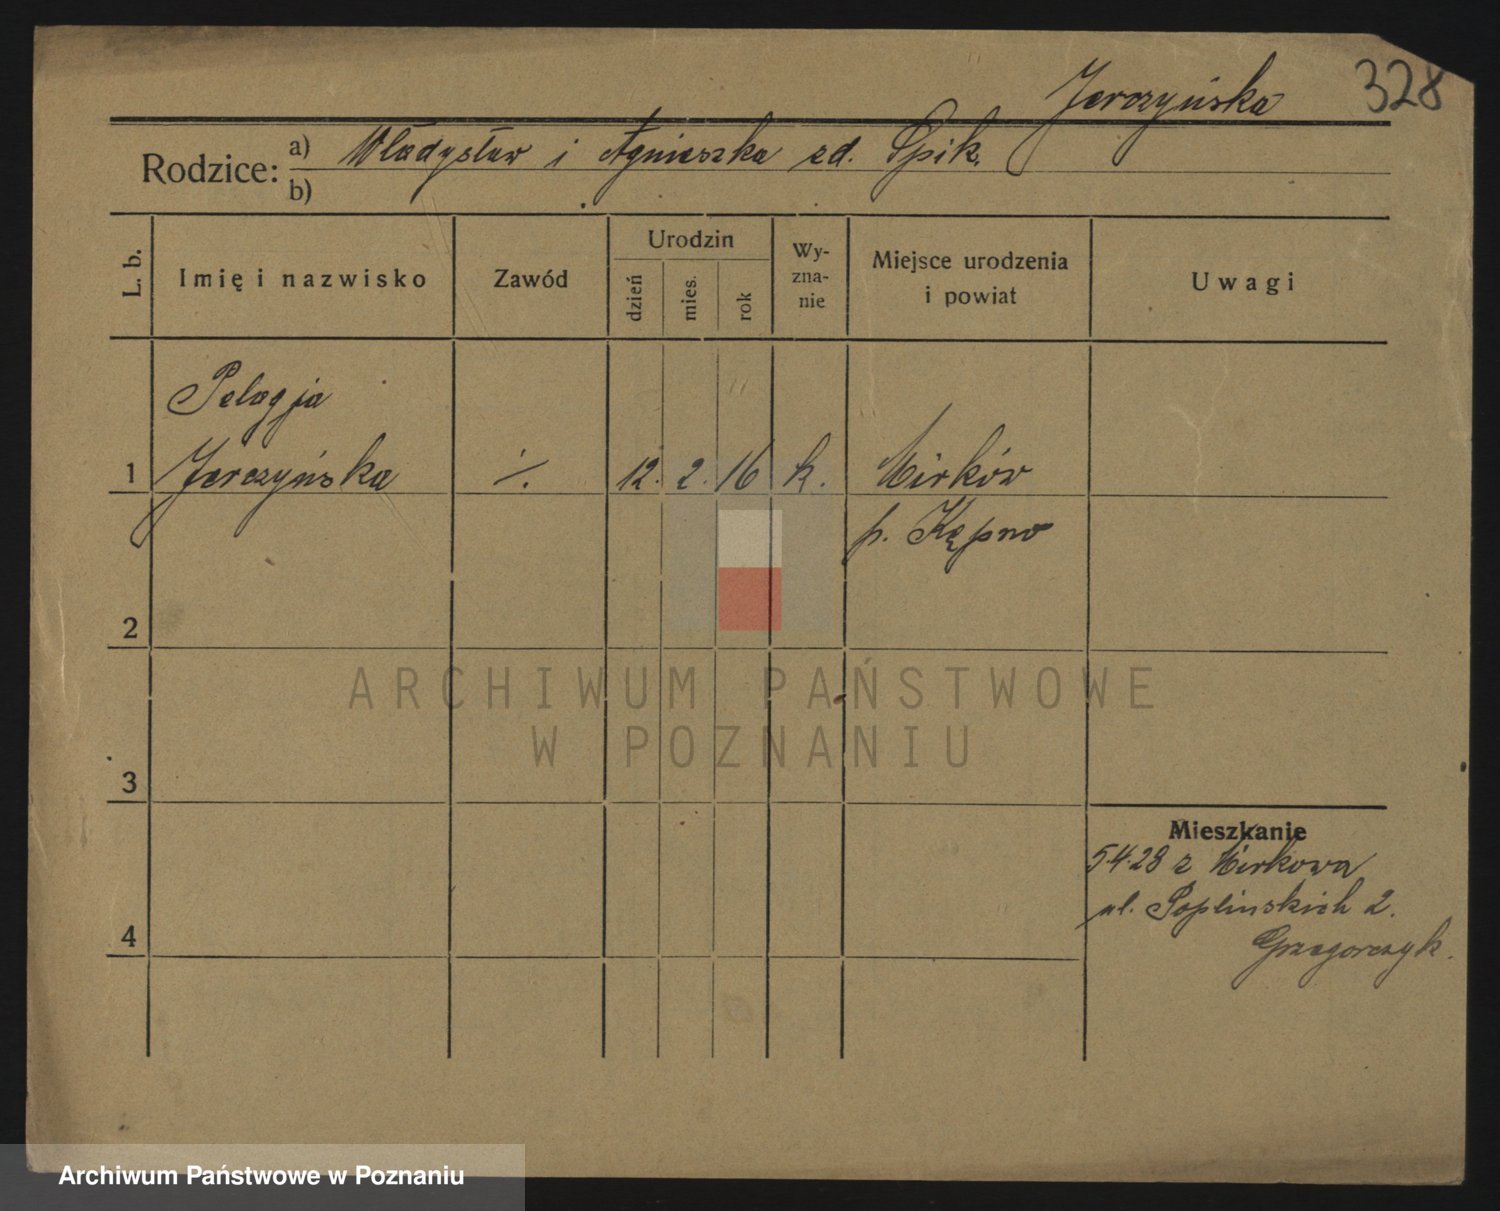 328
Jerczyńska
Rodzice: a) Władysław i Agnieszka zd. Spik.
b)
L. b.
Imię i nazwisko
Zawód
Urodzin
dzień
mies.
rok
Wy-
zna-
nie
Miejsce urodzenia
i powiat
Uwagi
Pelagja
1 Jerczyńska ./. 12. 2. 16 k. Mirków
p. Kępno
2
3
Mieszkanie
5.4.28 z Mirkowa
ul. Poplinskich 2.
Grzegorczyk.
4
ARCHIWUM PAŃSTWOWE
W POZNANIU
Archiwum Państwowe w Poznaniu